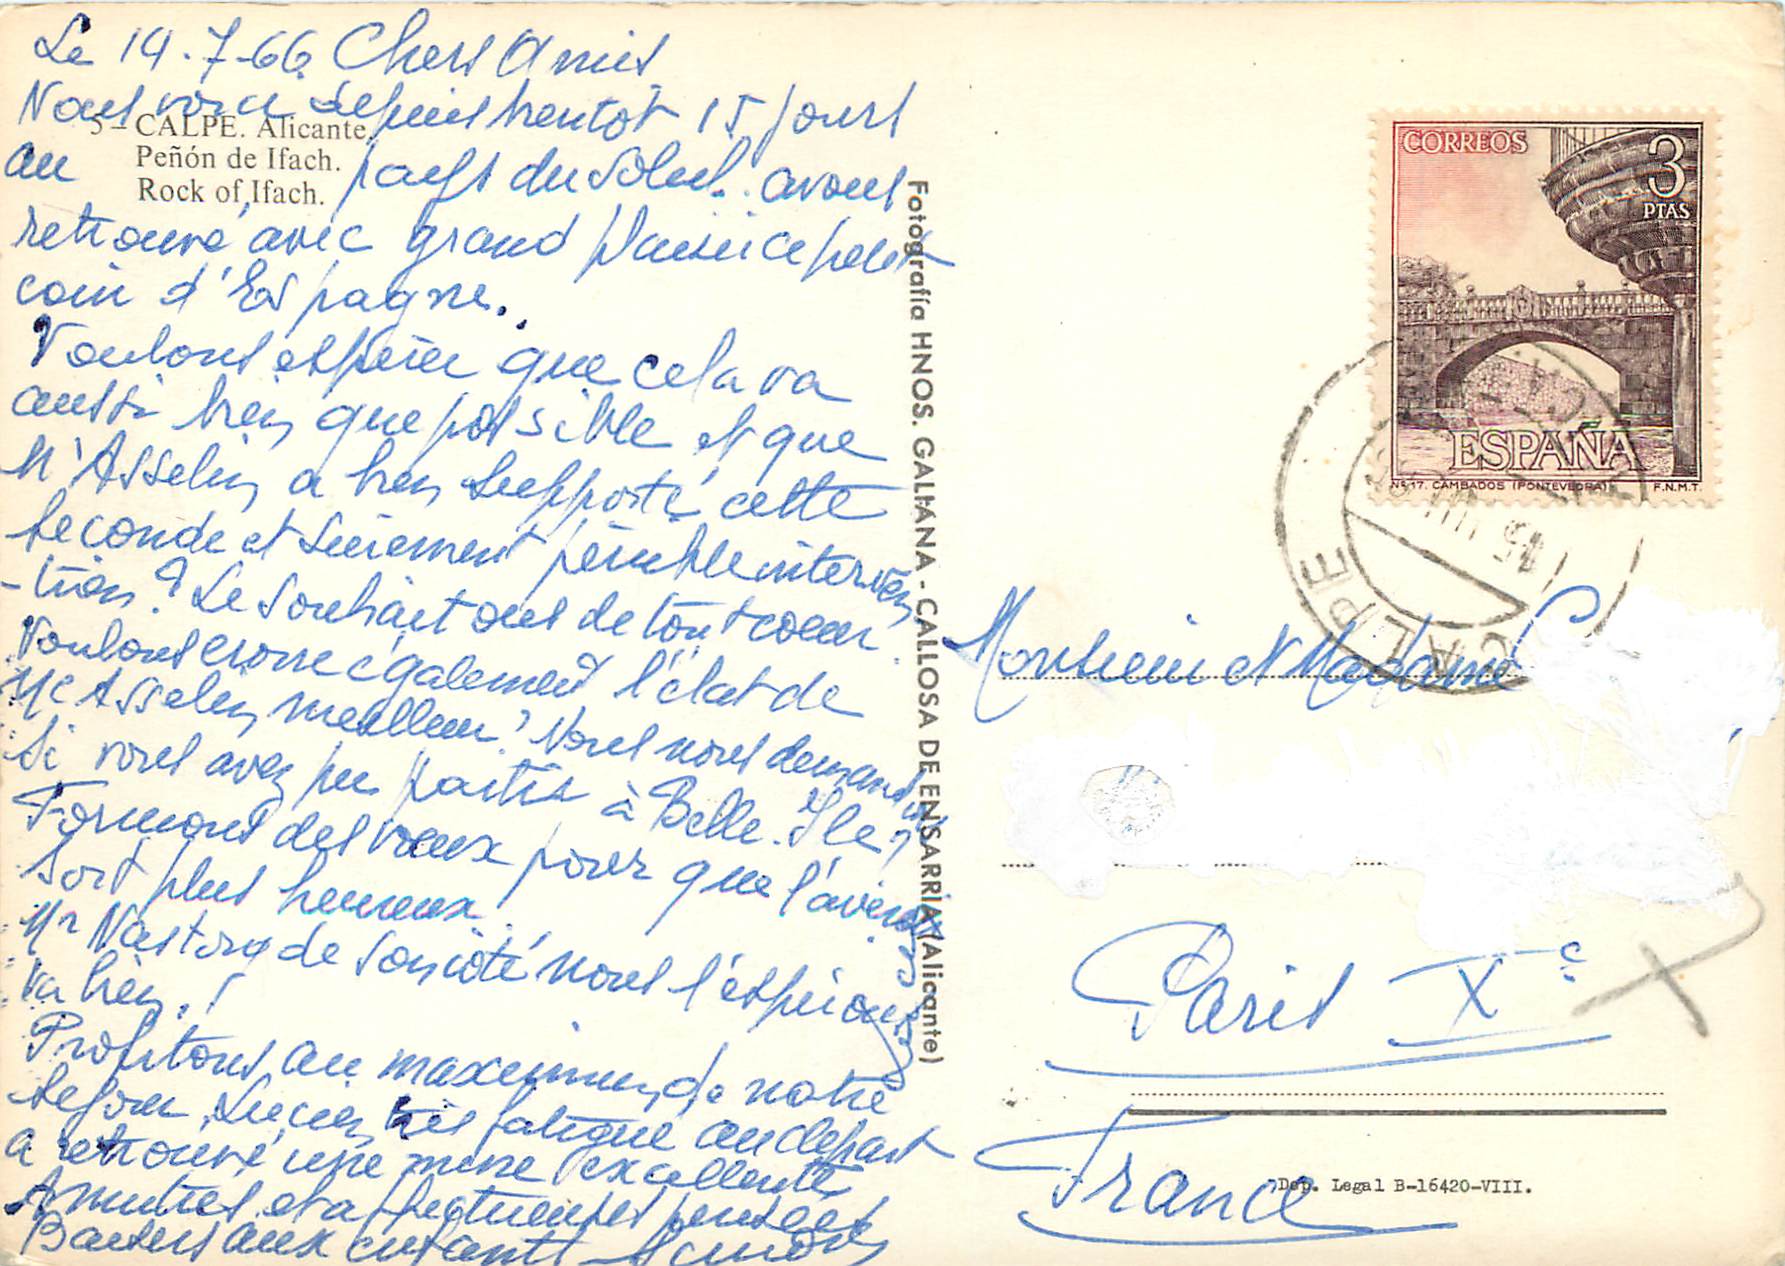 Le 14-7-66 Chers Amis
Nous voici depuis bientôt 15 jours
au pays du soleil. avons
retrouvé avec grand plaisir ce petit
coin d'Espagne.
Voulons espérer que cela va
aussi bien que possible et que
Mr Asselin a bien supporté cette
seconde et sûrement pénible interven
-tion? Le souhaitons de tout coeur.
Voulons croire également l'état de
Me Asselin meilleur? Nous nous demandons
si vous avez pu partir à Belle-Ile?
Formons des voeux pour que l'avenir
soit plus heureux.
Mr de son côté nous l'espérons
va bien.!
Profitons au maximum de notre
séjour. Lucien très fatigué au départ
a retrouvé une mine excellente
Amitiés et affectueuses pensées
Baisers aux enfants
5 – CALPE. Alicante.
Peñón de Ifach.
Rock of Ifach.
Fotografía HNOS. GALIANA - CALLOSA DE ENSARRIÁ (Alicante)
CORREOS
3
PTAS
ESPAÑA
Nº 17. CAMBADOS (PONTEVEDRA)
F.N.M.T.
CALPE
Monsieur et Madame
Paris Xe
France
Dep. Legal B-16420-VIII.